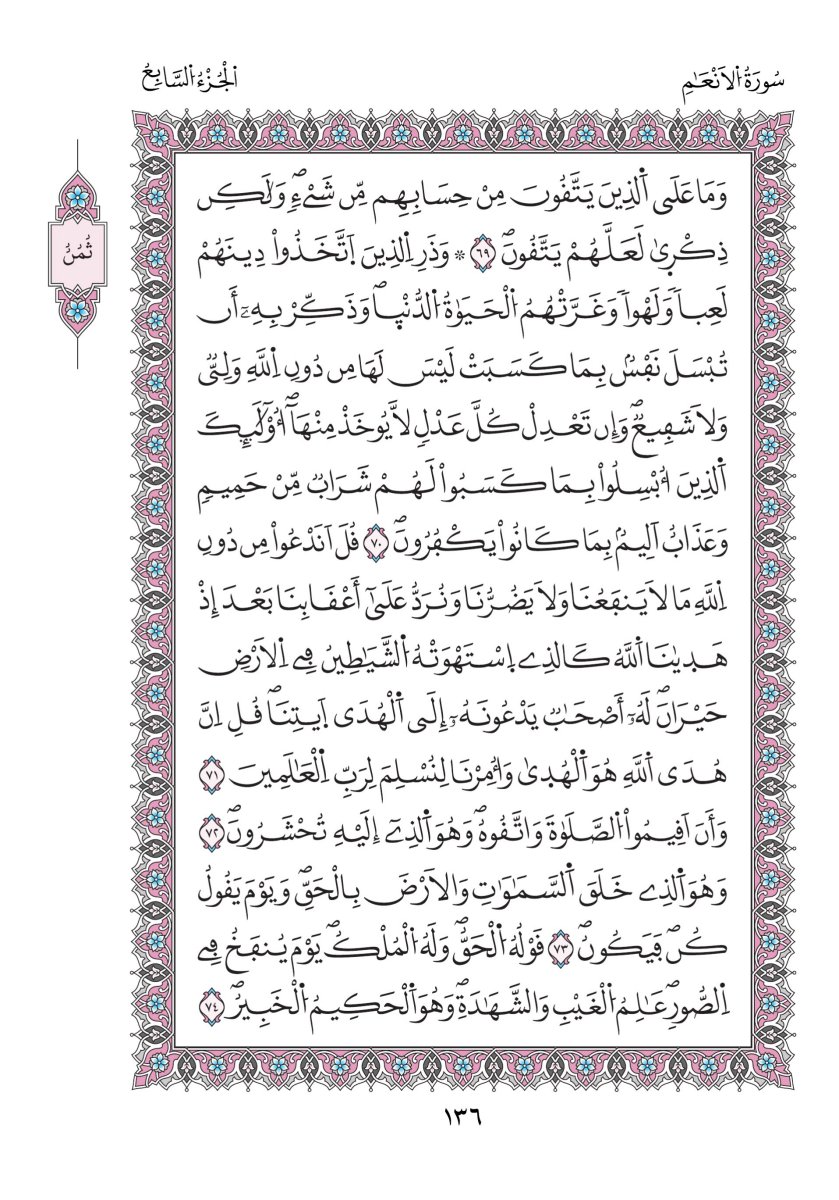 سُورَةُ الَانْعَٰمِ
الْجُزْءُ السَّابِعُ
وَمَا عَلَى اَ۬لذِينَ يَتَّقُونَ مِنْ حِسَابِهِم مِّن شَےْءٖۖ وَلَٰكِن
ذِكْر۪ىٰ لَعَلَّهُمْ يَتَّقُونَۖ ٦٩ ۞ وَذَرِ اِ۬لذِينَ اَ۪تَّخَذُواْ دِينَهُمْ
ثُمُنُ
لَعِباٗ وَلَهْواٗ وَغَرَّتْهُمُ اُ۬لْحَيَوٰةُ اُ۬لدُّنْي۪اۖ وَذَكِّرْ بِهِۦٓ أَن
تُبْسَلَ نَفْسُۢ بِمَا كَسَبَتْ لَيْسَ لَهَا مِن دُونِ اِ۬للَّهِ وَلِيّٞ
وَلَا شَفِيعٞۖ وَإِن تَعْدِلْ كُلَّ عَدْلٖ لَّا يُوخَذْ مِنْهَآۖ أُوْلَٰٓئِكَ
اَ۬لذِينَ أُبْسِلُواْ بِمَا كَسَبُواْ لَهُمْ شَرَابٞ مِّنْ حَمِيمٖ
وَعَذَابٌ اَلِيمُۢ بِمَا كَانُواْ يَكْفُرُونَۖ ٧٠ قُلَ اَنَدْعُواْ مِن دُونِ
اِ۬للَّهِ مَا لَا يَنفَعُنَا وَلَا يَضُرُّنَا وَنُرَدُّ عَلَىٰٓ أَعْقَابِنَا بَعْدَ إِذْ
هَد۪يٰنَا اَ۬للَّهُ كَالذِے اِ۪سْتَهْوَتْهُ اُ۬لشَّيَٰطِينُ فِے اِ۬لَارْضِ
حَيْرَانَۖ لَهُۥٓ أَصْحَٰبٞ يَدْعُونَهُۥٓ إِلَى اَ۬لْهُدَى اَ۪يتِنَاۖ قُلِ اِنَّ
هُدَى اَ۬للَّهِ هُوَ اَ۬لْهُد۪ىٰ وَأُمِرْنَا لِنُسْلِمَ لِرَبِّ اِ۬لْعَٰلَمِينَ ٧١
وَأَنَ اَقِيمُواْ اُ۬لصَّلَوٰةَ وَاتَّقُوهُۖ وَهُوَ اَ۬لذِےٓ إِلَيْهِ تُحْشَرُونَۖ ٧٢
وَهُوَ اَ۬لذِے خَلَقَ اَ۬لسَّمَٰوَٰتِ وَالَارْضَ بِالْحَقِّۖ وَيَوْمَ يَقُولُ
كُن فَيَكُونُۖ ٧٣ قَوْلُهُ اُ۬لْحَقُّۖ وَلَهُ اُ۬لْمُلْكُۖ يَوْمَ يُنفَخُ فِے
اِ۬لصُّورِۖ عَٰلِمُ اُ۬لْغَيْبِ وَالشَّهَٰدَةِۖ وَهُوَ اَ۬لْحَكِيمُ اُ۬لْخَبِيرُۖ ٧٤
١٣٦